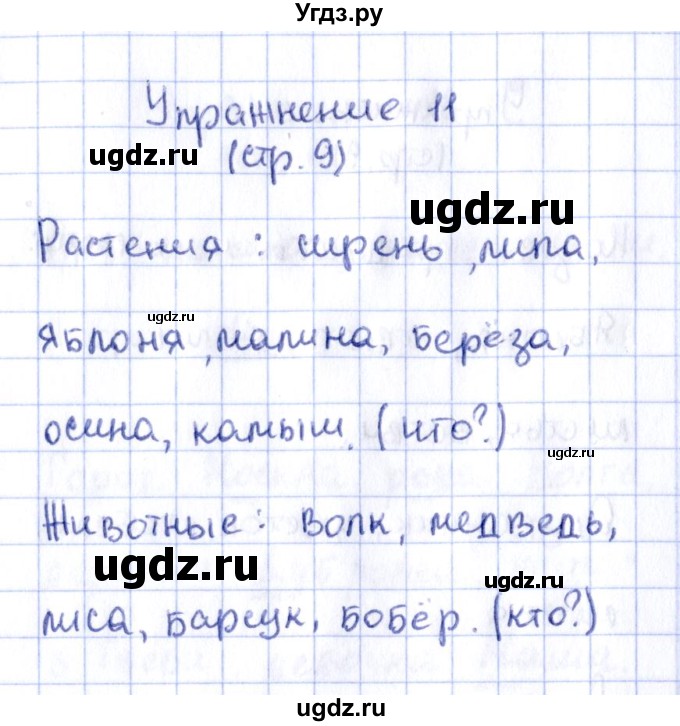 Угдз.ру
Упражнение 11
ugdz.ru
(стр. 9)
ugdz.ru
Растения : сирень, липа,
ugdz.ru
яблоня, малина, берёза,
осина, камыш. (что?)
ugdz.ru
Животные: волк, медведь,
ugdz.ru
ugdz.ru
лиса, барсук, бобёр. (кто?)
ugdz.ru